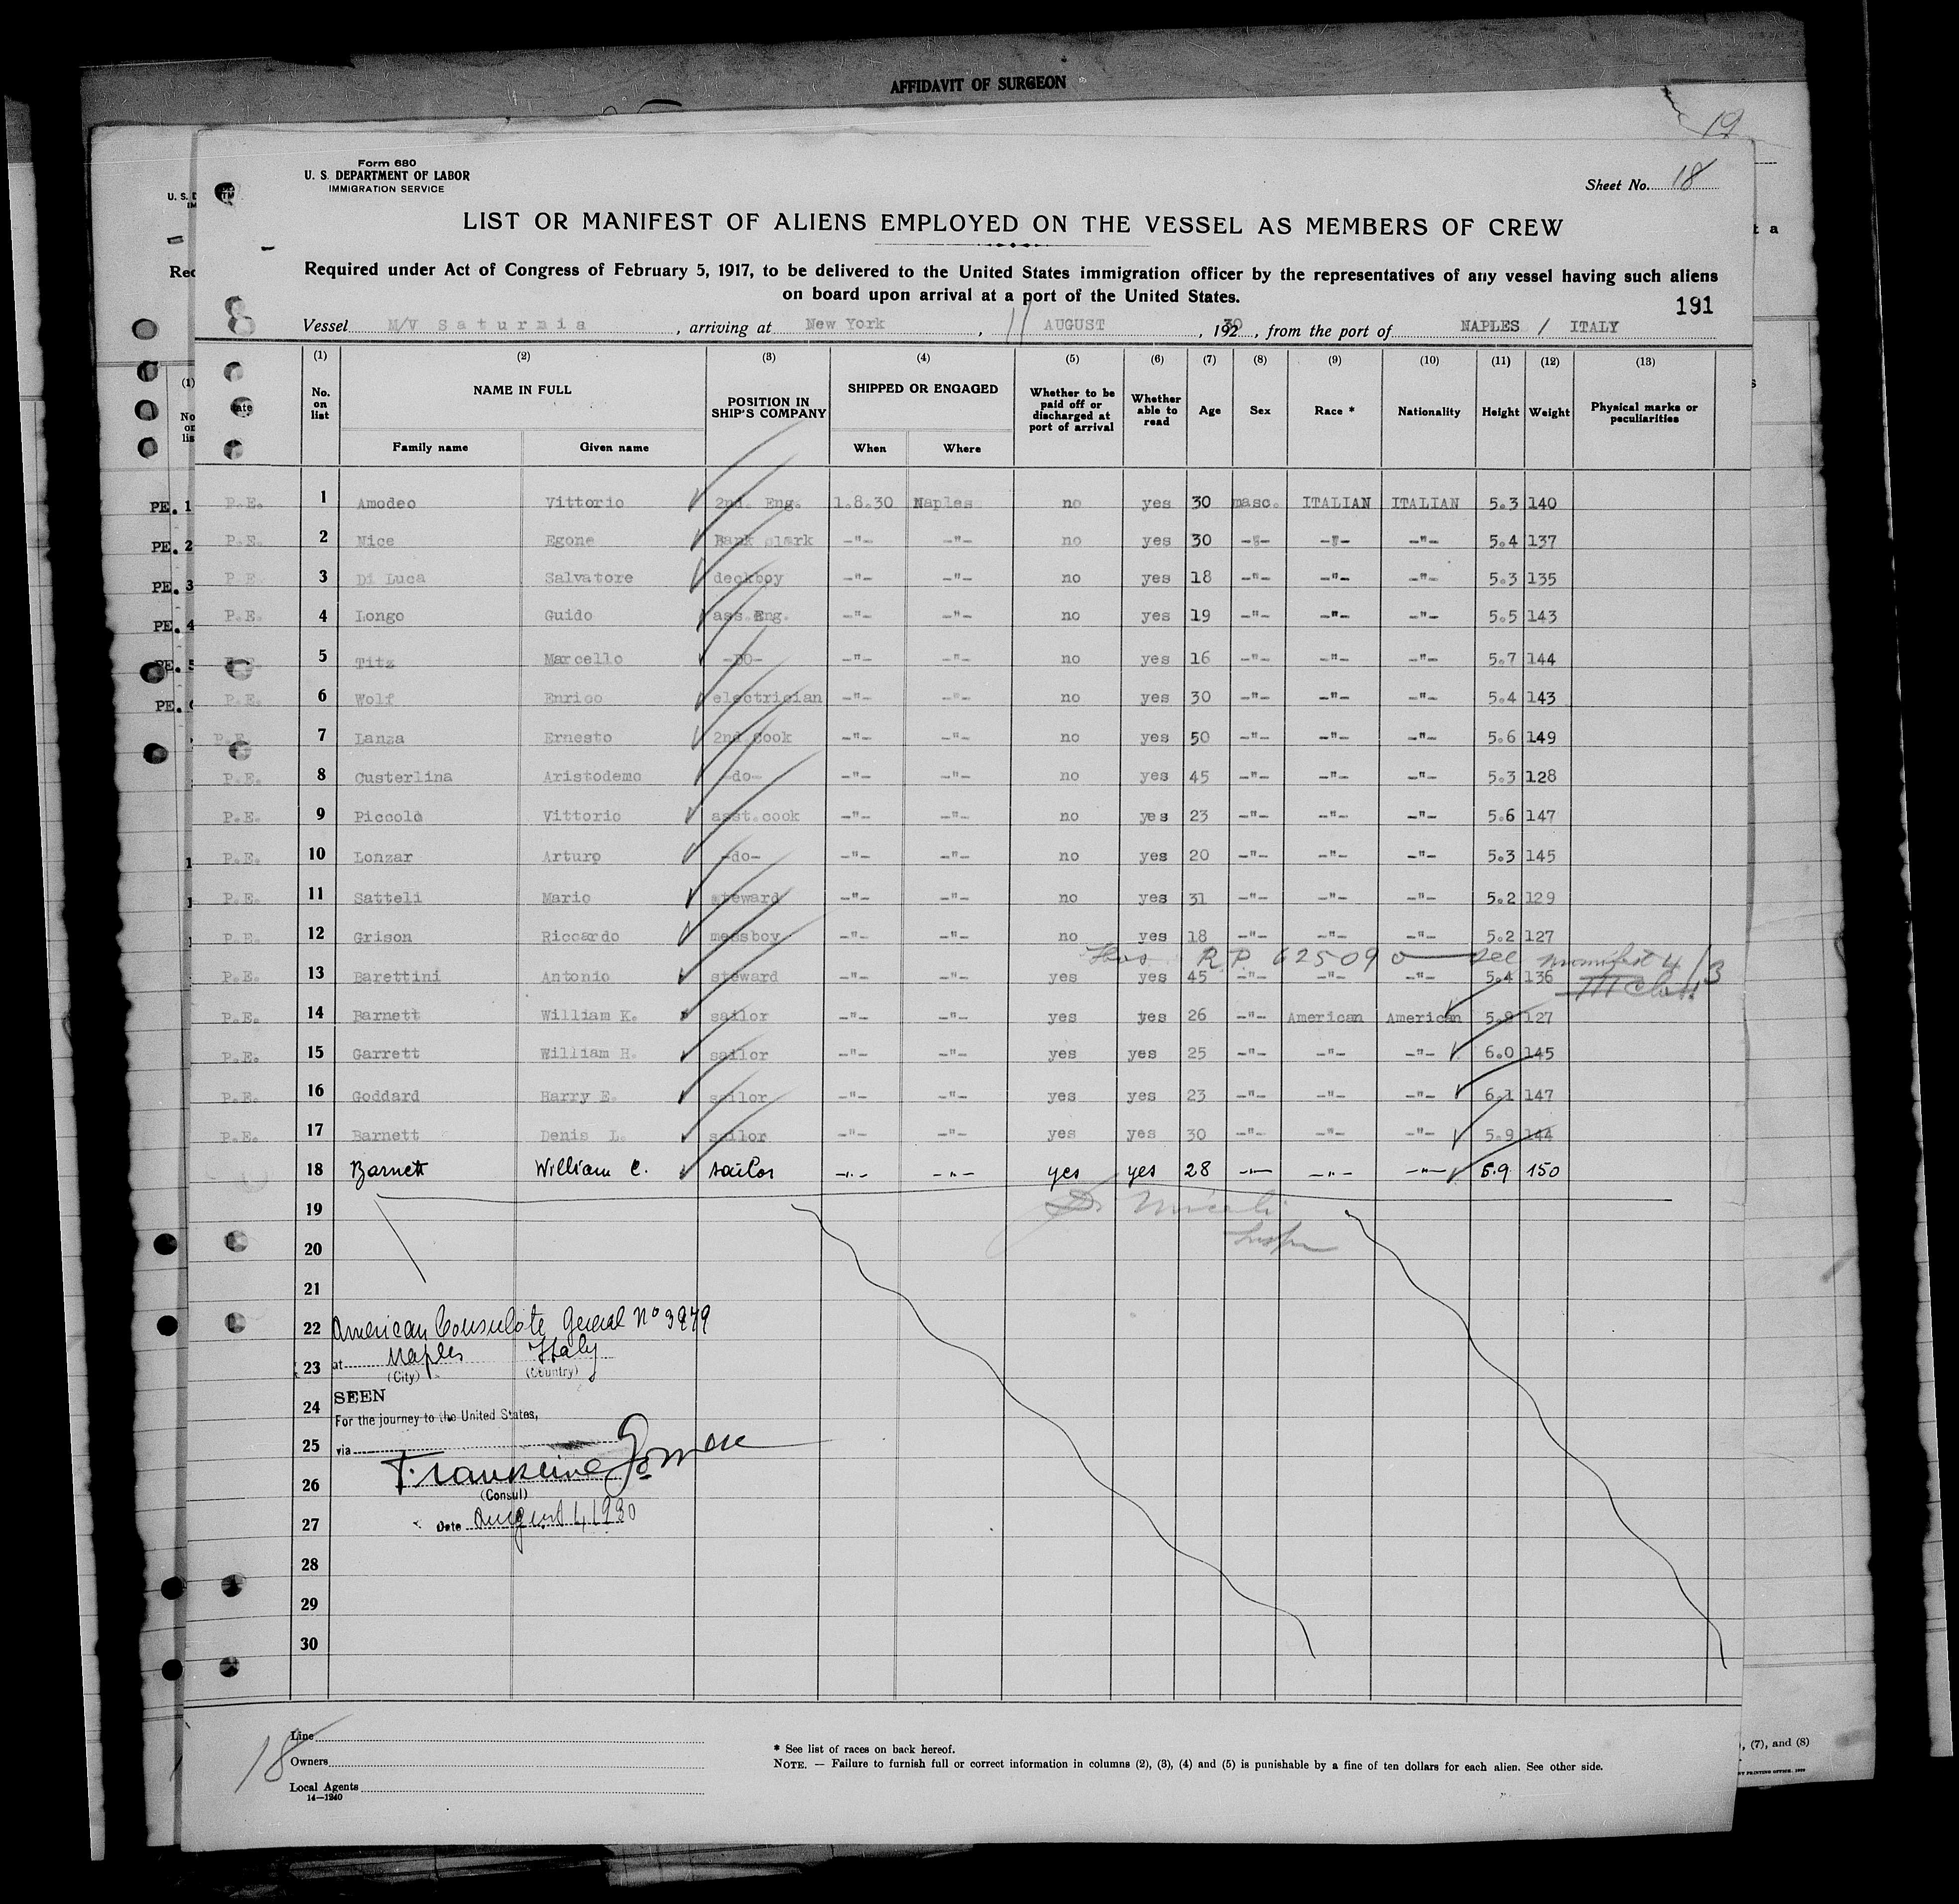 AFFIDAVIT OF SURGEON
19
Form 680
U. S. DEPARTMENT OF LABOR
IMMIGRATION SERVICE
Sheet No. 18
LIST OR MANIFEST OF ALIENS EMPLOYED ON THE VESSEL AS MEMBERS OF CREW
Required under Act of Congress of February 5, 1917, to be delivered to the United States immigration officer by the representatives of any vessel having such aliens
on board upon arrival at a port of the United States.
191
Vessel M/V Saturnia, arriving at New York, 11 AUGUST, 1930, from the port of NAPLES / ITALY
(1) (2) (3) (4) (5) (6) (7) (8) (9) (10) (11) (12) (13)
No. on list NAME IN FULL POSITION IN SHIP'S COMPANY SHIPPED OR ENGAGED Whether to be paid off or discharged at port of arrival Whether able to read Age Sex Race * Nationality Height Weight Physical marks or peculiarities
Family name Given name When Where
P.E. 1 Amodeo Vittorio 2nd. Eng. 1.8.30 Naples no yes 30 masc. ITALIAN ITALIAN 5.3 140
P.E. 2 Nice Egone Bank clark -"- -"- no yes 30 -"- -"- -"- 5.4 137
P.E. 3 Di Luca Salvatore deckboy -"- -"- no yes 18 -"- -"- -"- 5.3 135
P.E. 4 Longo Guido ass.Eng. -"- -"- no yes 19 -"- -"- -"- 5.5 143
P.E. 5 Titz Marcello -DO- -"- -"- no yes 16 -"- -"- -"- 5.7 144
P.E. 6 Wolf Enrico electrician -"- -"- no yes 30 -"- -"- -"- 5.4 143
P.E. 7 Lanza Ernesto 2nd Cook -"- -"- no yes 50 -"- -"- -"- 5.6 149
P.E. 8 Custerlina Aristodemo -do- -"- -"- no yes 45 -"- -"- -"- 5.3 128
P.E. 9 Piccolo Vittorio asst.cook -"- -"- no yes 23 -"- -"- -"- 5.6 147
P.E. 10 Lonzar Arturo -do- -"- -"- no yes 20 -"- -"- -"- 5.3 145
P.E. 11 Satteli Mario steward -"- -"- no yes 31 -"- -"- -"- 5.2 129
P.E. 12 Grison Riccardo messboy -"- -"- no yes 18 -"- -"- -"- 5.2 127
Has R.P. 625090 see manifest 4/3
P.E. 13 Barettini Antonio steward -"- -"- yes yes 45 -"- -"- -"- 5.4 136
P.E. 14 Barnett William K. sailor -"- -"- yes yes 26 -"- American American 5.9 127
P.E. 15 Garrett William H. sailor -"- -"- yes yes 25 -"- -"- -"- 6.0 145
P.E. 16 Goddard Harry E. sailor -"- -"- yes yes 23 -"- -"- -"- 6.1 147
P.E. 17 Barnett Denis L. sailor -"- -"- yes yes 30 -"- -"- -"- 5.9 144
18 Barnett William C. sailor -"- -"- yes yes 28 -"- -"- -"- 5.9 150
19
20
21
22 American Consulate General No 3979
23 at Naples Italy
(City) (Country)
24 SEEN
For the journey to the United States,
25 via
26
(Consul)
27 Date August 4 1930
28
29
30
18
Line
Owners
Local Agents
14—1240
* See list of races on back hereof.
NOTE. — Failure to furnish full or correct information in columns (2), (3), (4) and (5) is punishable by a fine of ten dollars for each alien. See other side.
, (7), and (8)